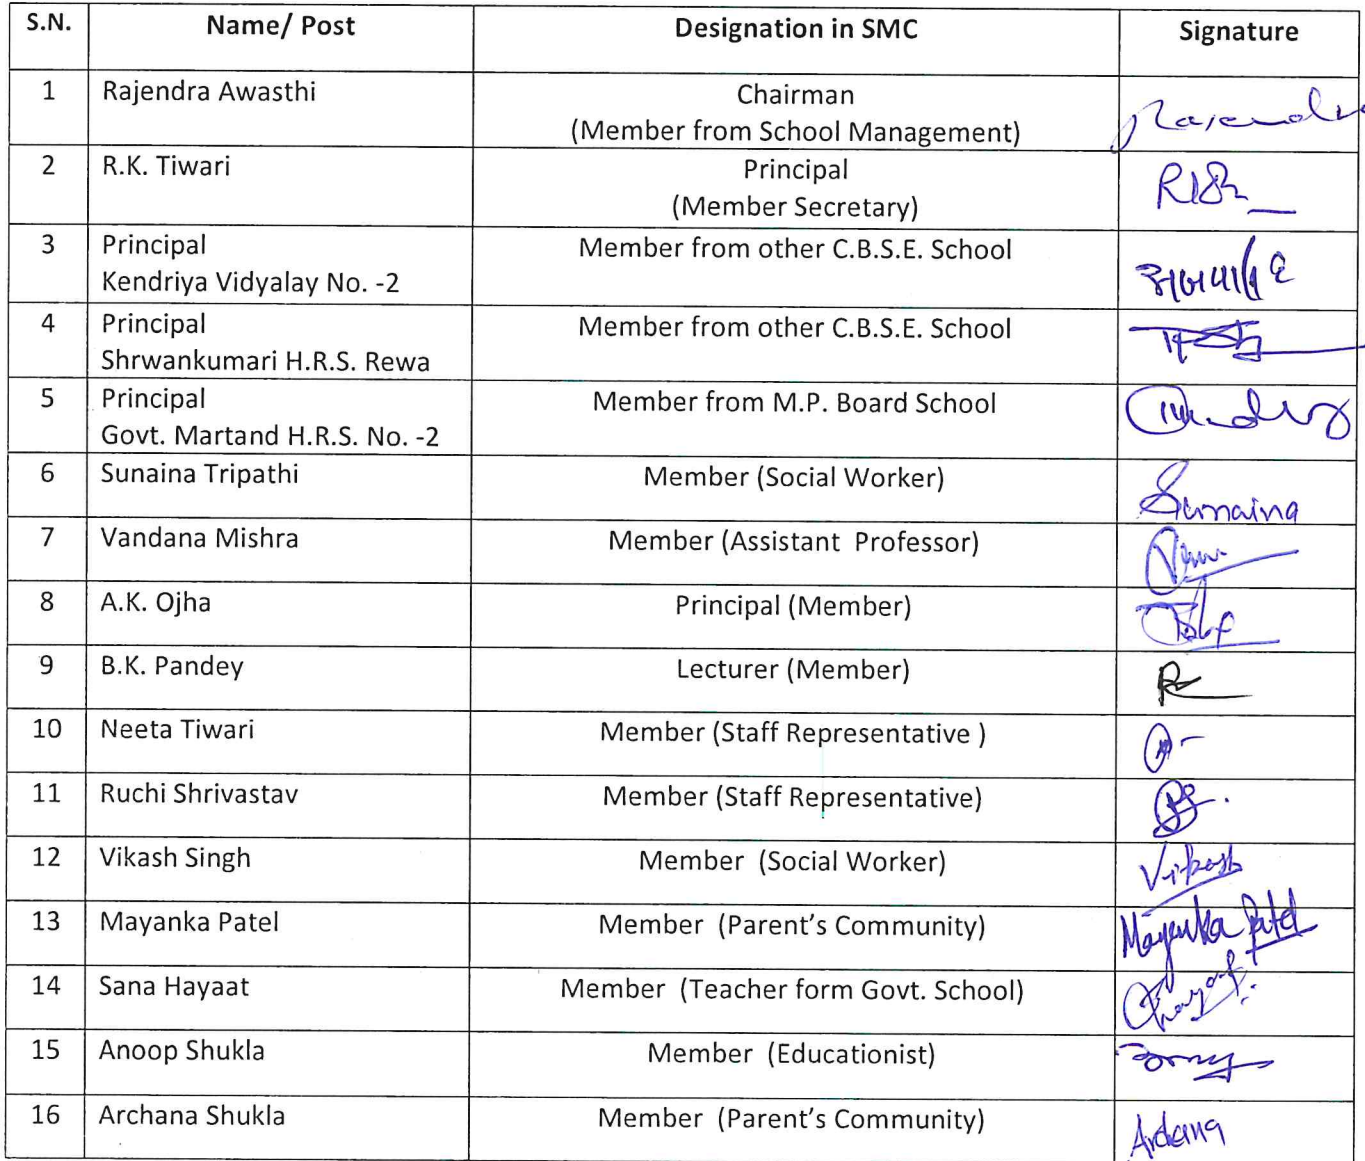 S.N. Name/ Post Designation in SMC Signature
1 Rajendra Awasthi Chairman
(Member from School Management) Rajendra
2 R.K. Tiwari Principal
(Member Secretary)
3 Principal Member from other C.B.S.E. School
Kendriya Vidyalay No. -2
4 Principal Member from other C.B.S.E. School
Shrwankumari H.R.S. Rewa
5 Principal Member from M.P. Board School
Govt. Martand H.R.S. No. -2
6 Sunaina Tripathi Member (Social Worker) Sunaina
7 Vandana Mishra Member (Assistant Professor)
8 A.K. Ojha Principal (Member)
9 B.K. Pandey Lecturer (Member)
10 Neeta Tiwari Member (Staff Representative )
11 Ruchi Shrivastav Member (Staff Representative)
12 Vikash Singh Member (Social Worker) Vikash
13 Mayanka Patel Member (Parent's Community) Mayanka Patel
14 Sana Hayaat Member (Teacher form Govt. School)
15 Anoop Shukla Member (Educationist)
16 Archana Shukla Member (Parent's Community) Archana